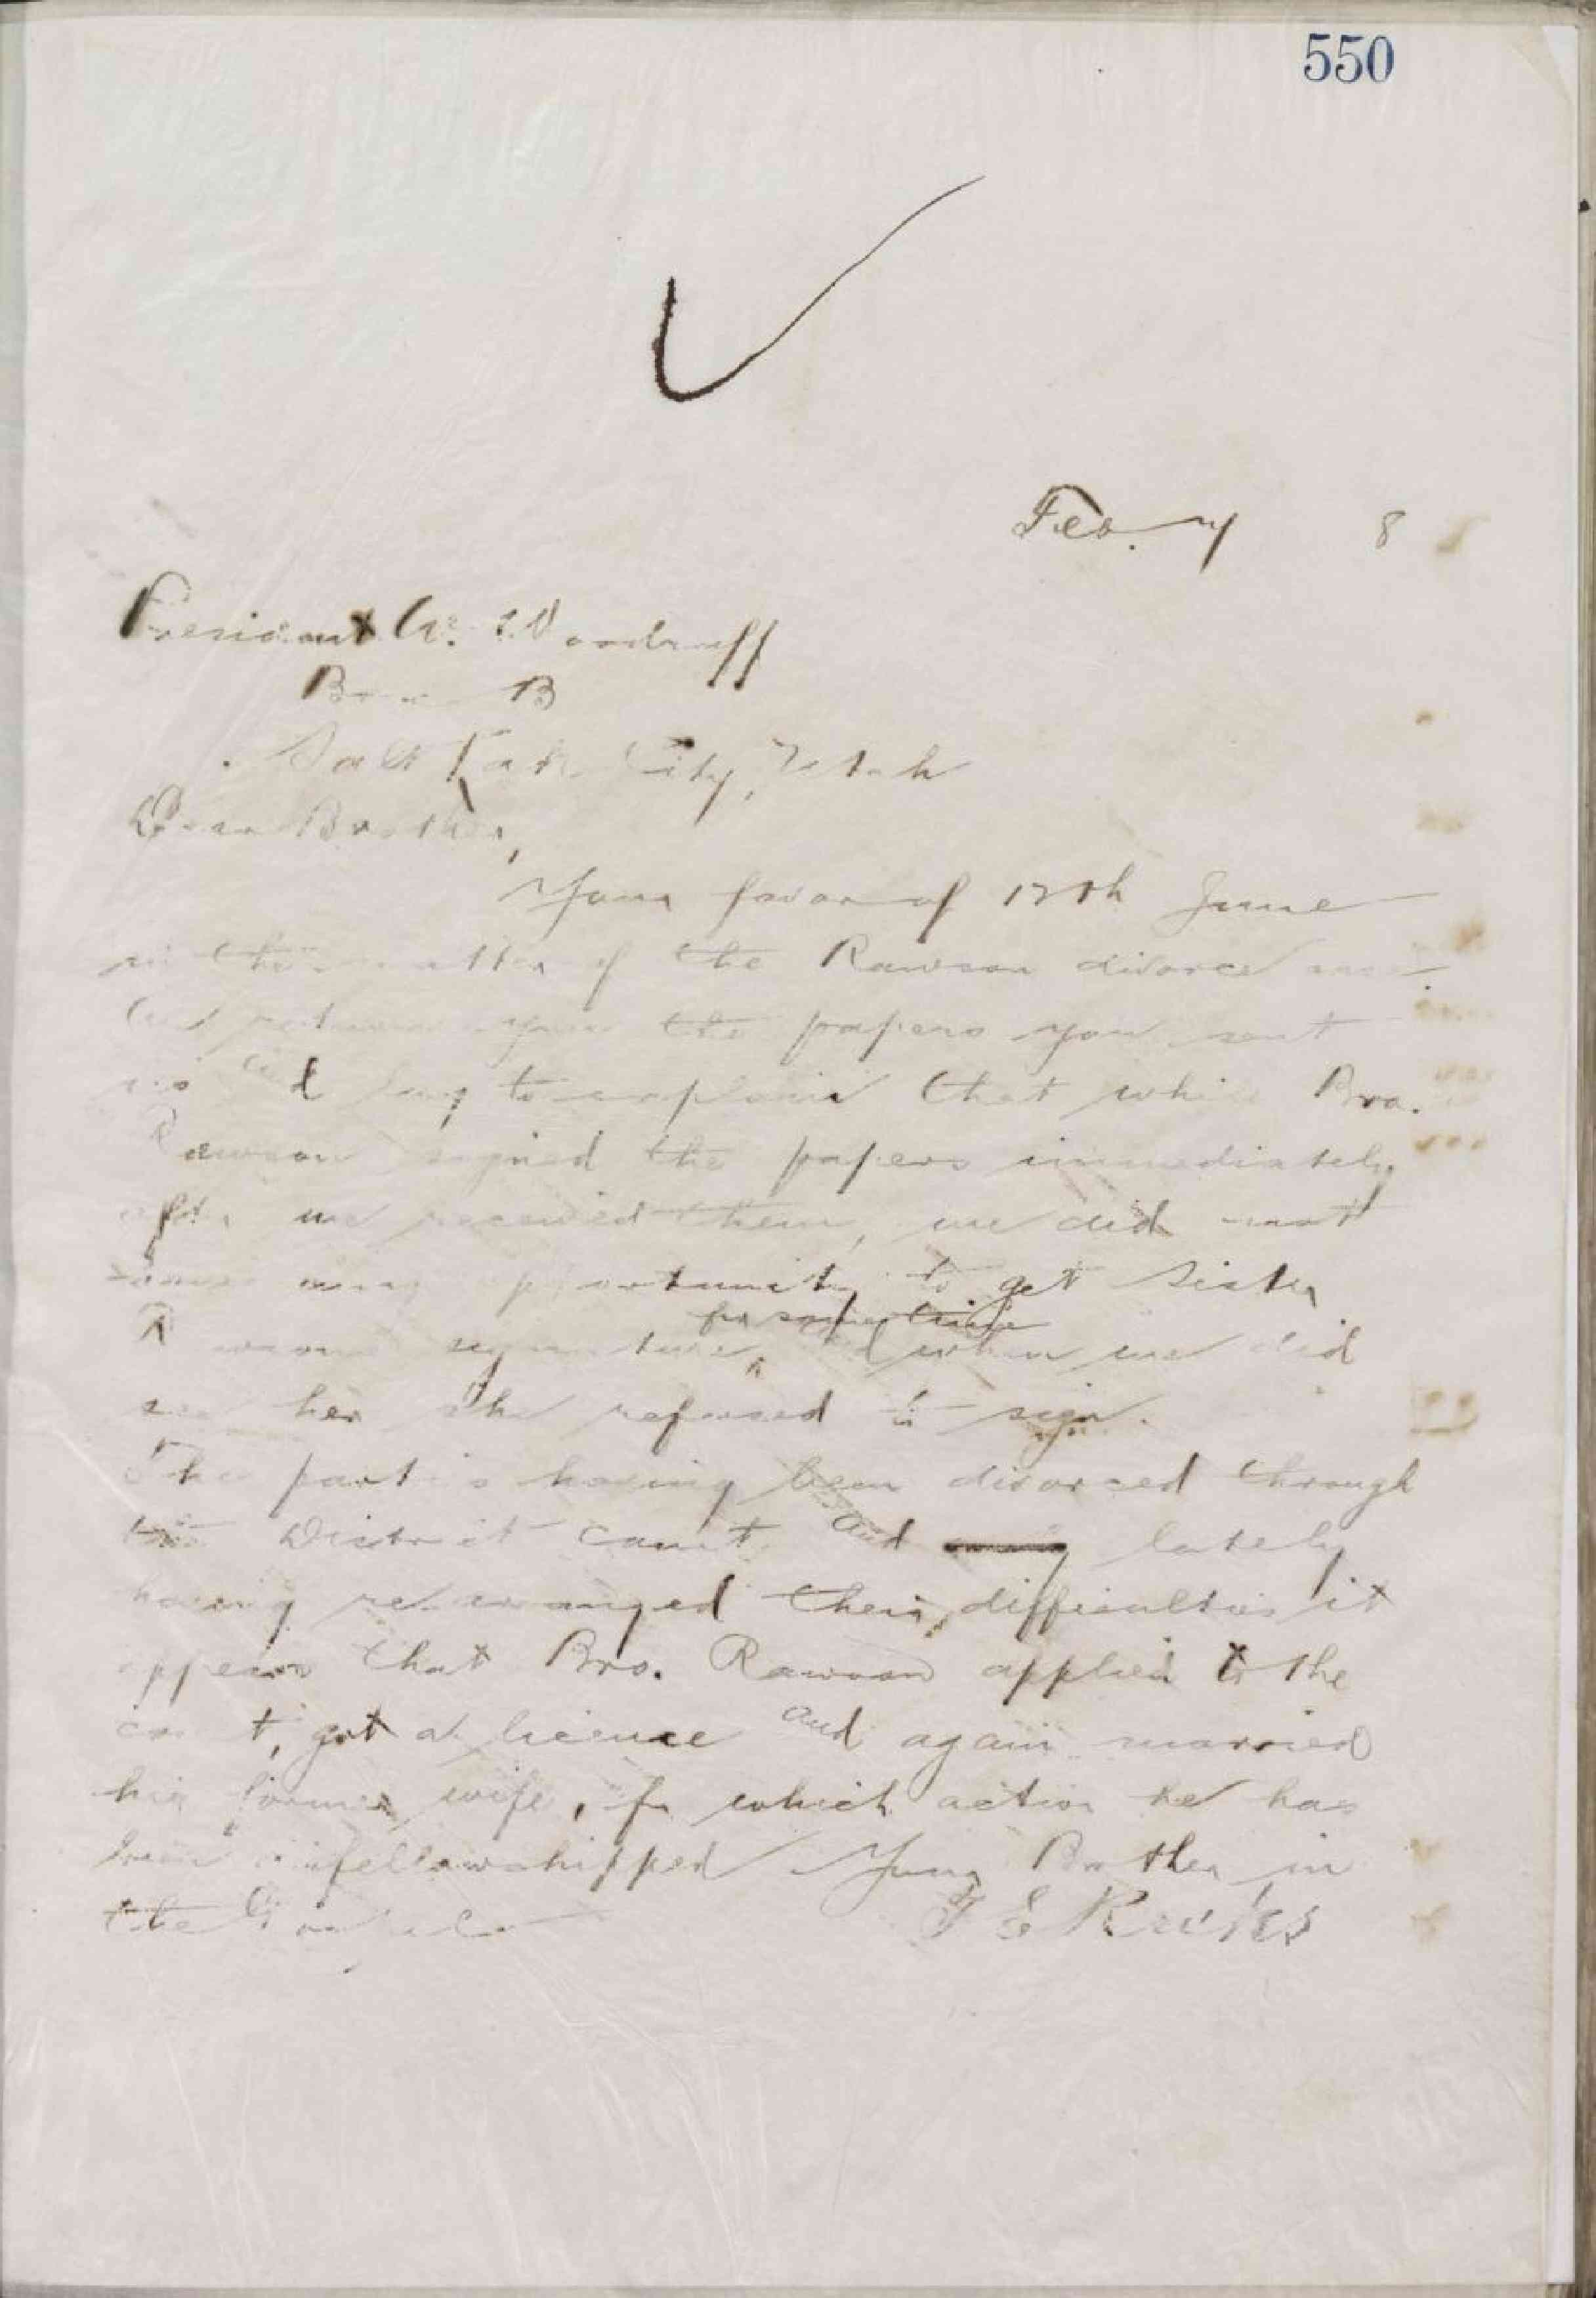 550
Feb. 7 8
President W. Woodruff
Box B
Salt Lake City, Utah
Dear Brother,
Your favor of 12th June
in the matter of the Rawson divorce
return you the papers you sent
us and beg to explain that while Bro.
Rawson signed the papers immediately
after we received them, we did not
have any oportunity to get Sister
for some time
Rawsons signature, ^ when we did
see her she refused to sign.
The parties having been divorced through
the District Court and lately
having re-arranged their difficulties it
appears that Bro. Rawson applied to the
court, got a licence and again married
his former wife, for which action he has
been disfellowshipped Your Brother in
the Gospel
T E Ricks